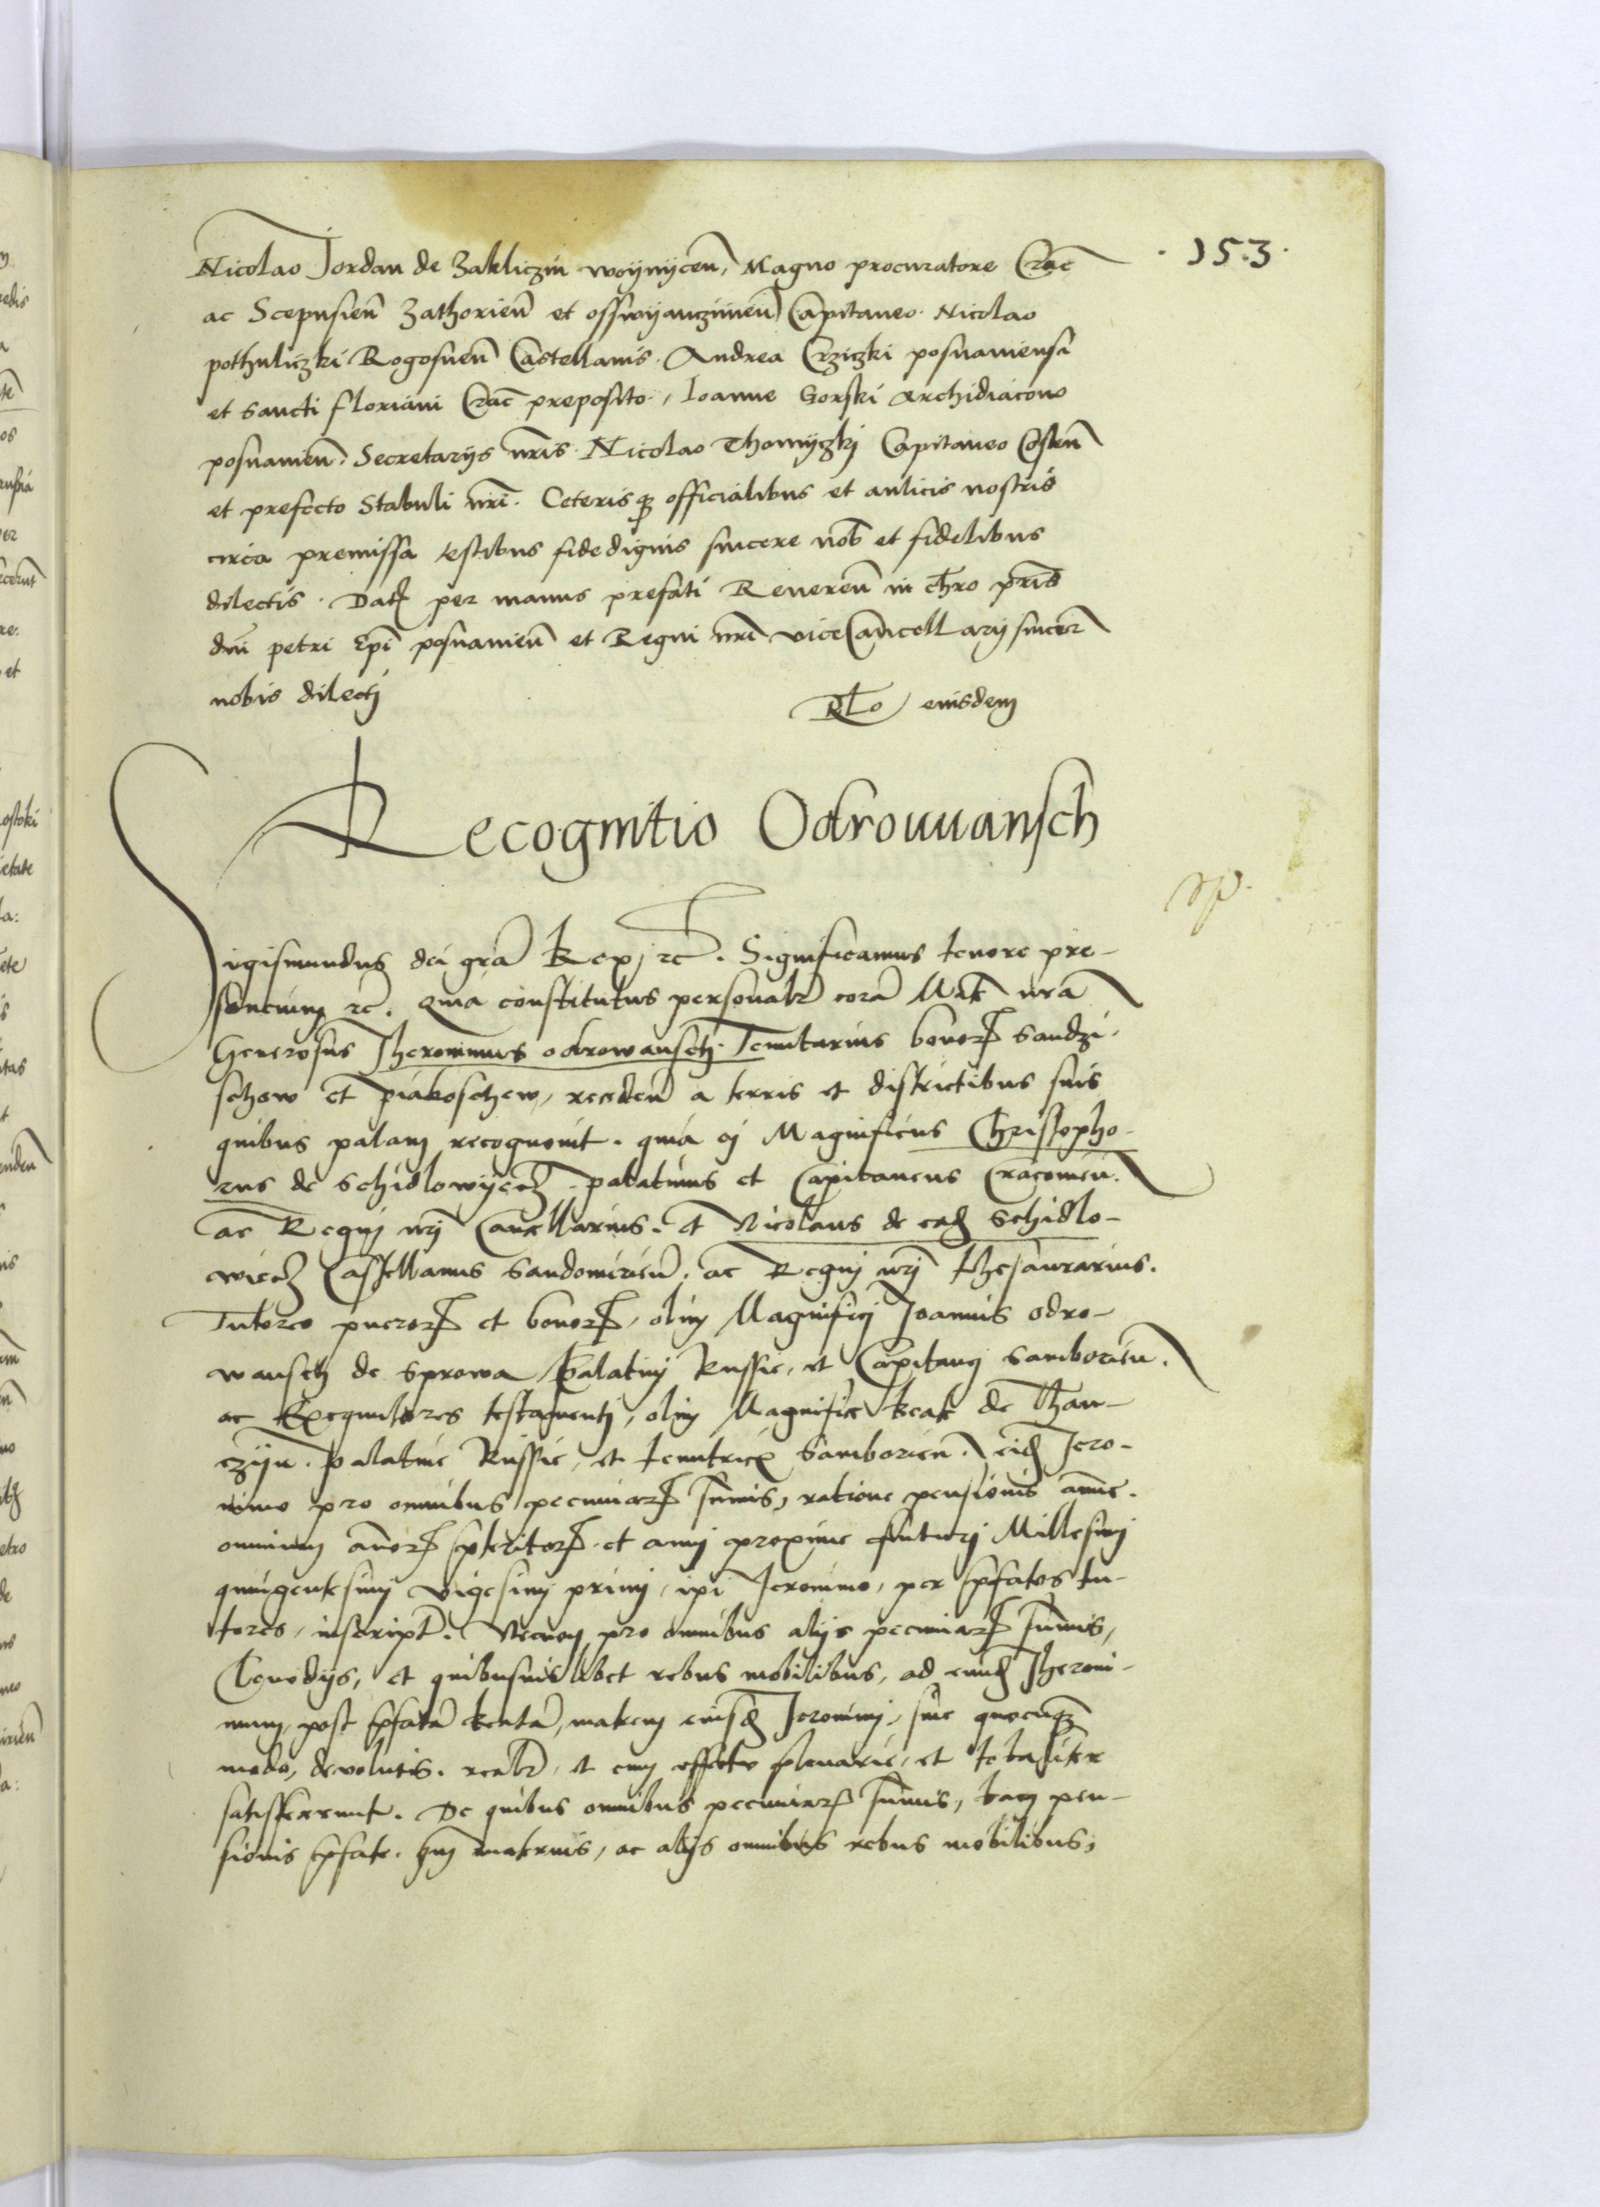 Nicolao Jordan de Zakliczin woynycen̄, Magno procuratore Crac̄
· 153 ·
ac Scepusien̄ Zathorien̄ et osswyanczimen̄ Capitaneo. Nicolao
pothuliczki Rogosnen̄ Castellanis. Andrea Crziczki posnaniensi
et sancti floriani Crac̄ preposito, Ioanne Gorski Archidiacono
posnanien̄. Secretarys nr̄is. Nicolao Thomyczkj Capitaneo Costen̄
et prefecto Stabuli nr̄i. Ceterisqȝ officialibus et aulicis nostris
circa premissa testibus fidedignis sincere nob̄ et fidelibus
dilectis. Datꝭ per manus prefati Reueren̄ in chr̄o pr̄is
dn̄i petri Ep̄i posnanien̄ et Regni nr̄i viceCancellarij sincer̄
nobis dilectj
Rl̄o eiusdem
Recognitio Odrouuansch
Sigismundus dei gr̄a Rex, rc̄. Significamus tenore pre-
sencium rc̄. Quia constitutus personalr̄ corā Mtē nr̄a
Generosus Jheronimus odrowansch Tenutarius bonorꝝ sandzi-
schow et piakoschew, receden̄ a terris et districtibus suis
quibus palam recognouit. quia ej Magnificus Christopho-
rus de schidlowyecz. palatinus et Capitaneus Cracouien̄.
ac Regnj nr̄j Cancellarius. et Nicolaus de ead̄ schidlo-
wiecz Castellanus sandomirien̄. ac Regnj nr̄j thesaurarius.
Tutores puerorꝝ et bonorꝝ, olim Magnificj Joannis odro-
wansch de sprowa palatinj Russie, et Capitanej samborien̄.
ac Exequutores testamentj, olim Magnifice Beate de Than-
czijn. palatine Russie, et tenutricis Samborien̄. eid̄ Jero-
nimo pro omnibus pecuniarꝝ sum̄is, ratione pensionis annue.
omnium an̄orꝝ pr̄teritorꝝ. et anni proxime futurj Millesimj
quingentesimj vigesimj primj, ip̄i Jeronimo, per pr̄fatos tu-
tores, inscript̄. Necnon pro omnibus alijs pecuniarꝝ sum̄is,
Clenodijs, et quibusuislibet rebus mobilibus, ad eund̄ Jheroni-
mum, post pr̄fatā Beatā, matrem eiusd̄ Jeronimj, siue quocunqȝ
modo, deuolutis. realr̄, et cum effectu plenarie, et totaliter
satisfecerunt. De quibus omnibus pecuniarꝝ sum̄is, tam pen-
sionis pr̄fate. maternis, ac alijs omnibus rebus mobilibus,